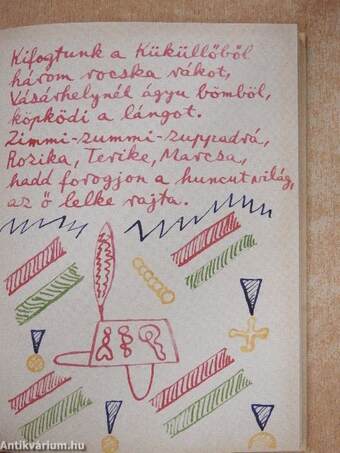 Kifogtunk a Küküllőből
három rocska rákot,
Vásárhelynél ágyu bömböl,
köpködi a lángot.
Zimmi-zummi-zuppadrá,
Rozika, Terike, Marcsa,
hadd forogjon a huncut világ,
az ő lelke rajta.
Antikvárium.hu